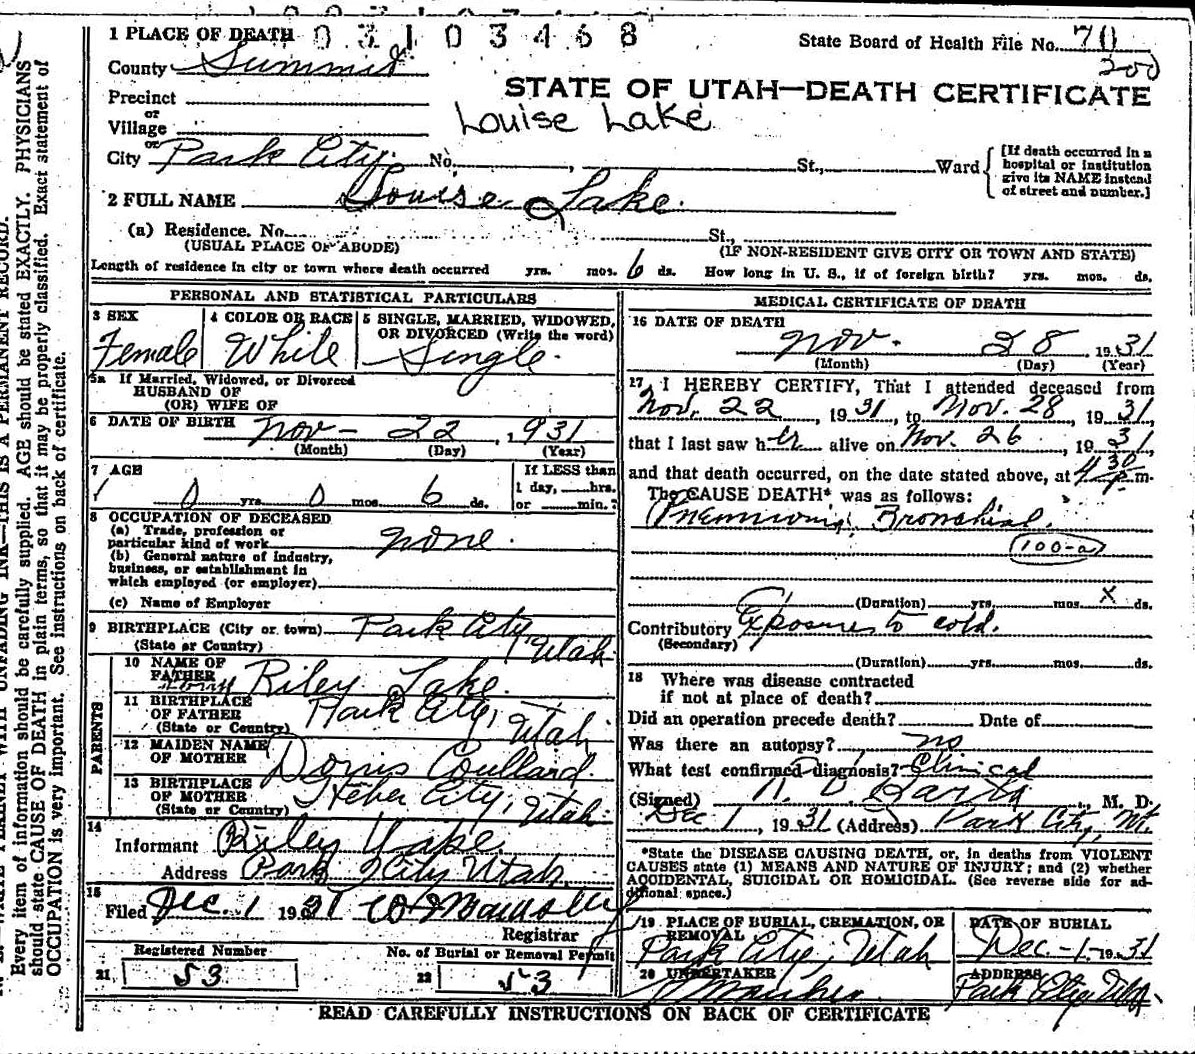 03103468
1 PLACE OF DEATH
State Board of Health File No. 70
200
County Summit
STATE OF UTAH—DEATH CERTIFICATE
Precinct
or
Village
Louise Lake
or
City Park City. No. , St., Ward
[If death occurred in a
hospital or institution
give its NAME instead
of street and number.]
2 FULL NAME Louise Lake.
(a) Residence. No. St.,
(USUAL PLACE OF ABODE) (IF NON-RESIDENT GIVE CITY OR TOWN AND STATE)
Length of residence in city or town where death occurred yrs. mos. 6 ds. How long in U. S., if of foreign birth? yrs. mos. ds.
PERSONAL AND STATISTICAL PARTICULARS
3 SEX
Female
4 COLOR OR RACE
White
5 SINGLE, MARRIED, WIDOWED,
OR DIVORCED (Write the word)
Single.
5a If Married, Widowed, or Divorced
HUSBAND OF
(OR) WIFE OF
6 DATE OF BIRTH Nov- 22, 1931
(Month) (Day) (Year)
7 AGE
0 yrs. 0 mos. 6 ds.
If LESS than
1 day, hrs.
or min.?
8 OCCUPATION OF DECEASED
(a) Trade, profession or
particular kind of work none.
(b) General nature of industry,
business, or establishment in
which employed (or employer)
(c) Name of Employer
9 BIRTHPLACE (City or town) Park City,
(State or Country) Utah
PARENTS
10 NAME OF
FATHER Riley Lake.
11 BIRTHPLACE
OF FATHER Park City,
(State or Country) Utah
12 MAIDEN NAME
OF MOTHER Doris Coullard.
13 BIRTHPLACE
OF MOTHER Heber City,
(State or Country) Utah.
14
Informant Riley Lake.
Address Park City Utah.
15
Filed Dec. 1 1931
Registrar
Registered Number
21 53
No. of Burial or Removal Permit
22 53
MEDICAL CERTIFICATE OF DEATH
16 DATE OF DEATH
Nov. 28, 1931
(Month) (Day) (Year)
17 I HEREBY CERTIFY, That I attended deceased from
Nov. 22, 1931, to Nov. 28, 1931,
that I last saw her alive on Nov. 26, 1931,
and that death occurred, on the date stated above, at 4 30 P.m.
The CAUSE DEATH* was as follows:
Bronchial.
100-a
(Duration) yrs. mos. x ds.
Contributory Exposure to cold.
(Secondary)
(Duration) yrs. mos. ds.
18 Where was disease contracted
if not at place of death?
Did an operation precede death? Date of
Was there an autopsy? no
What test confirmed diagnosis? Clinical
(Signed) , M. D.
Dec 1, 1931 (Address) Park City, Ut.
*State the DISEASE CAUSING DEATH, or, in deaths from VIOLENT
CAUSES state (1) MEANS AND NATURE OF INJURY; and (2) whether
ACCIDENTAL, SUICIDAL OR HOMICIDAL. (See reverse side for ad-
ditional space.)
19 PLACE OF BURIAL, CREMATION, OR
REMOVAL
Park City, Utah
DATE OF BURIAL
Dec-1-1931
20 UNDERTAKER
ADDRESS
Park City Utah.
READ CAREFULLY INSTRUCTIONS ON BACK OF CERTIFICATE
WRITE PLAINLY WITH UNFADING INK—THIS IS A PERMANENT RECORD.
Every item of information should be carefully supplied. AGE should be stated EXACTLY. PHYSICIANS
should state CAUSE OF DEATH in plain terms, so that it may be properly classified. Exact statement of
OCCUPATION is very important. See instructions on back of certificate.